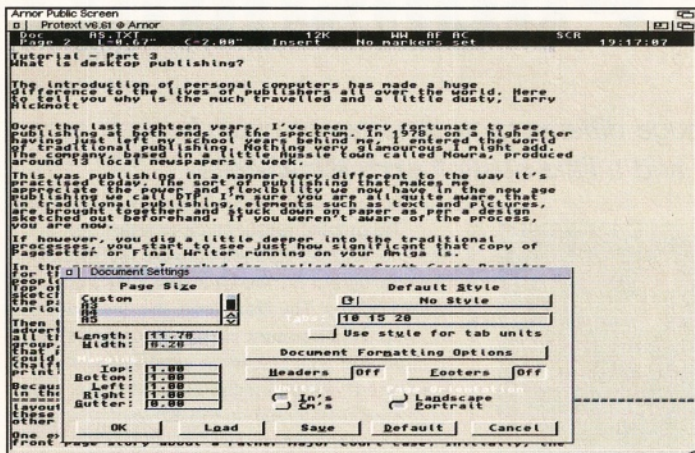 Arnor Public Screen
Protext v6.61 @ Arnor
Doc AS.TXT 12K WW AF AC SCR
Page 2 L=0.67" C=2.00" Insert No markers set 19:17:07
Tutorial - Part 3
What is desktop publishing?
The introduction of personal computers has made a huge
difference to the lives of publishers all over the world. Here
to tell you why is the much travelled and a little dusty, Larry
Hickmott
Over the last eighteen years, I've been very fortunate to see
publishing at both ends of the spectrum. In 1978, on a high after
having just left my school years behind me, I entered the world
of traditional publishing. Nothing very glamorous I might add.
The company, based in a little Aussie town called Nowra, produced
around six local newspapers a week.
This was publishing in a manner very different to the way it's
practised today. The sort of publishing that makes me
appreciate the power and flexibility we now have in the new age
publishing we call DTP. I'm sure you are all quite aware that
in traditional publishing, elements such as text and pictures,
are brought together and stuck down on paper as per a design
sketched out beforehand. If you weren't aware of the process,
you are now.
If however, you dig a little deeper into the traditional
processes, you start to see just how significant that copy of
PageSetter or Final Writer running on your Amiga is.
Document Settings
Page Size
Default Style
Custom
A3
A4
A5
No Style
Tabs: 10 15 20
Use style for tab units
Length: 11.70
Width: 8.20
Document Formatting Options
Margins:
Top: 1.00
Bottom: 1.00
Left: 1.00
Right: 1.00
Gutter: 0.00
Headers Off Footers Off
Units: Page Orientation
In's Landscape
Cm's Portrait
OK Load Save Default Cancel
front page story about a rather major court case. Initially, the